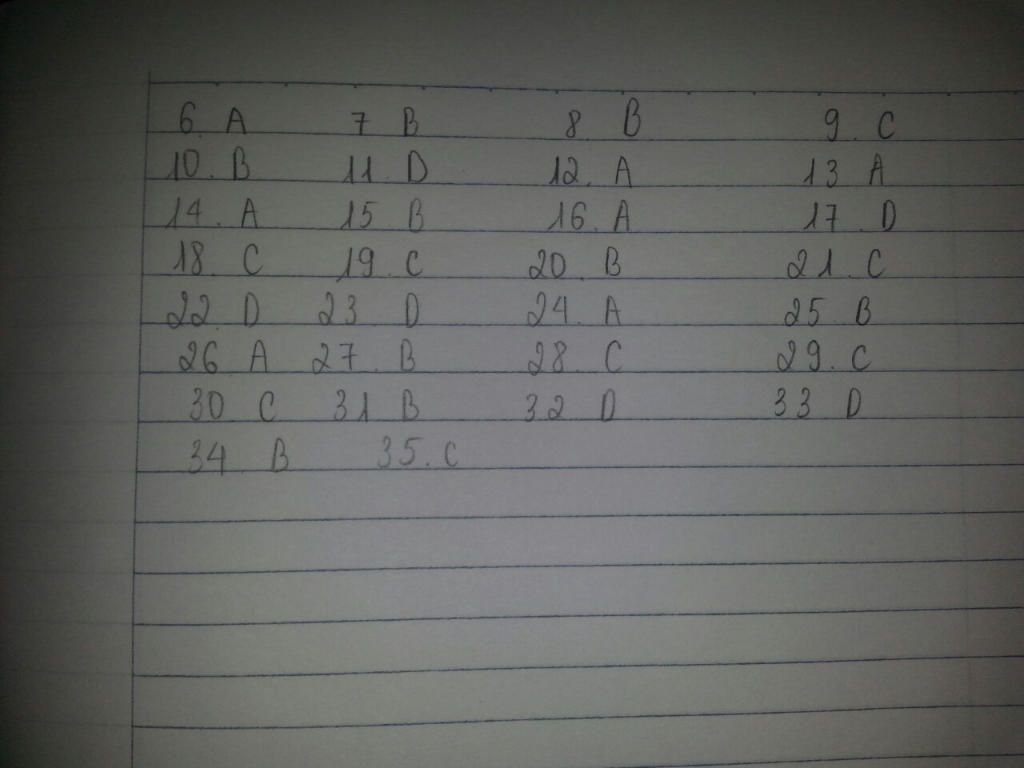 6. A 7 B 8. B 9. C
10. B 11. D 12. A 13 A
14. A 15 B 16. A 17. D
18. C 19. C 20. B 21. C
22. D 23 D 24. A 25 B
26 A 27. B 28. C 29. C
30 C 31 B 32 D 33 D
34 B 35. C